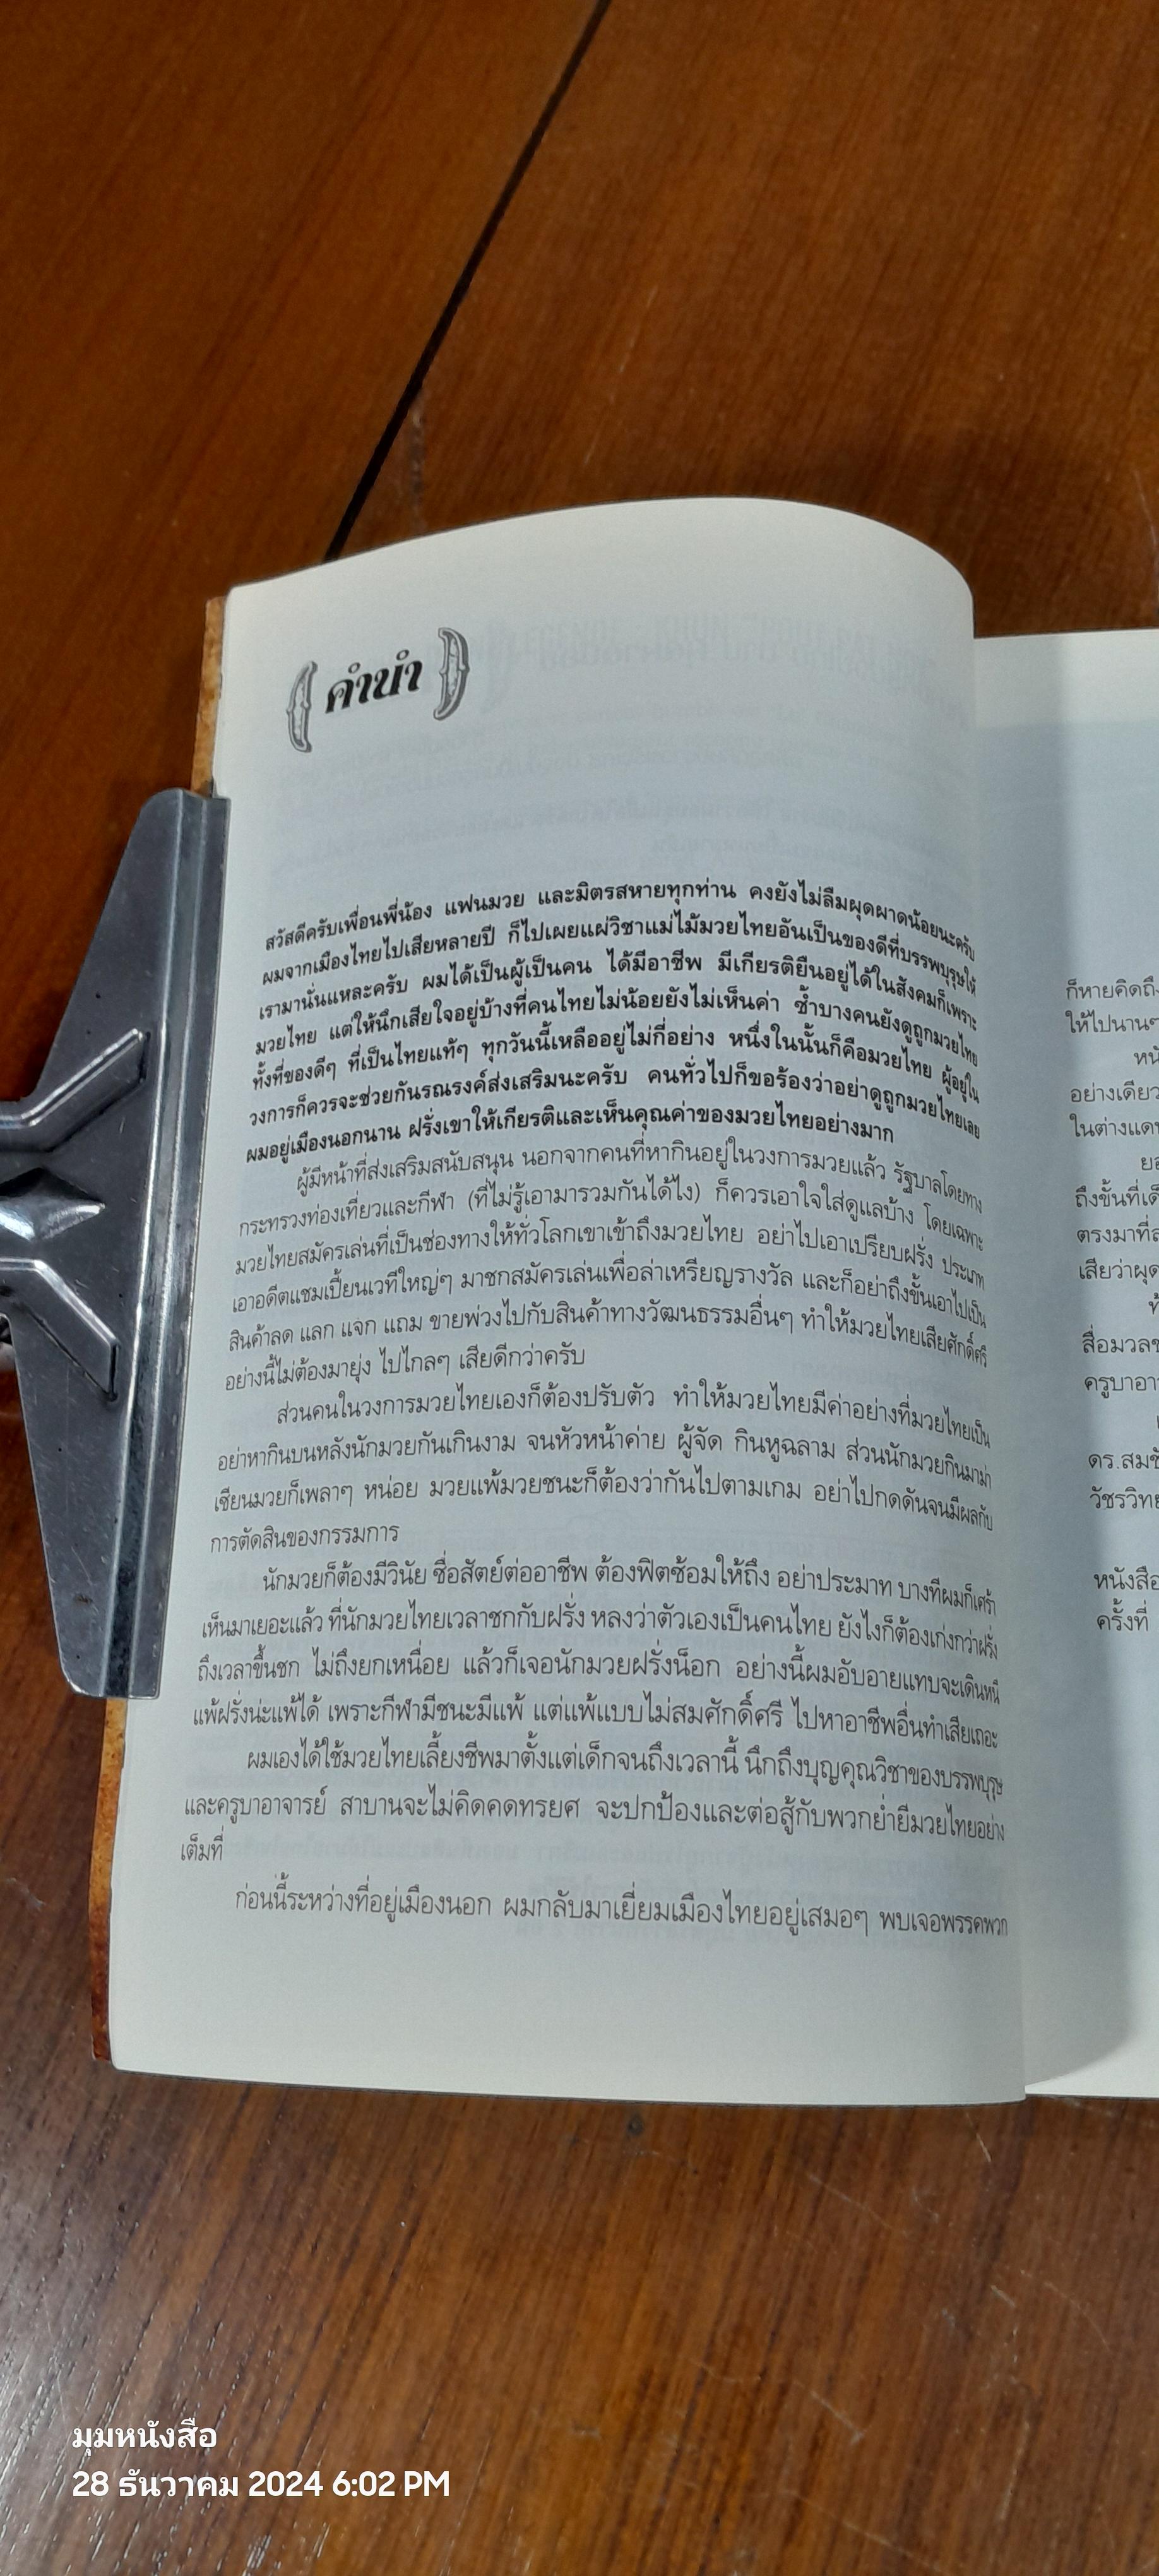 คำนำ
สวัสดีครับเพื่อนพี่น้อง แฟนมวย และมิตรสหายทุกท่าน คงยังไม่ลืมผุดผาดน้อยนะครับ
ผมจากเมืองไทยไปเสียหลายปี ก็ไปเผยแผ่วิชาแม่ไม้มวยไทยอันเป็นของดีที่บรรพบุรุษให้
เรามานั่นแหละครับ ผมได้เป็นผู้เป็นคน ได้มีอาชีพ มีเกียรติยืนอยู่ได้ในสังคมก็เพราะ
มวยไทย แต่ให้นึกเสียใจอยู่บ้างที่คนไทยไม่น้อยยังไม่เห็นค่า ซ้ำบางคนยังดูถูกมวยไทย
ทั้งที่ของดีๆ ที่เป็นไทยแท้ๆ ทุกวันนี้เหลืออยู่ไม่กี่อย่าง หนึ่งในนั้นก็คือมวยไทย ผู้อยู่ใน
วงการก็ควรจะช่วยกันรณรงค์ส่งเสริมนะครับ คนทั่วไปก็ขอร้องว่าอย่าดูถูกมวยไทยเลย
ผมอยู่เมืองนอกนาน ฝรั่งเขาให้เกียรติและเห็นคุณค่าของมวยไทยอย่างมาก
ผู้มีหน้าที่ส่งเสริมสนับสนุน นอกจากคนที่หากินอยู่ในวงการมวยแล้ว รัฐบาลโดยทาง
กระทรวงท่องเที่ยวและกีฬา (ที่ไม่รู้เอามารวมกันได้ไง) ก็ควรเอาใจใส่ดูแลบ้าง โดยเฉพาะ
มวยไทยสมัครเล่นที่เป็นช่องทางให้ทั่วโลกเขาเข้าถึงมวยไทย อย่าไปเอาเปรียบฝรั่ง ประเภท
เอาอดีตแชมเปี้ยนเวทีใหญ่ๆ มาชกสมัครเล่นเพื่อล่าเหรียญรางวัล และก็อย่าถึงขั้นเอาไปเป็น
สินค้าลด แลก แจก แถม ขายพ่วงไปกับสินค้าทางวัฒนธรรมอื่นๆ ทำให้มวยไทยเสียศักดิ์ศรี
อย่างนี้ไม่ต้องมายุ่ง ไปไกลๆ เสียดีกว่าครับ
ส่วนคนในวงการมวยไทยเองก็ต้องปรับตัว ทำให้มวยไทยมีค่าอย่างที่มวยไทยเป็น
อย่าหากินบนหลังนักมวยกันเกินงาม จนหัวหน้าค่าย ผู้จัด กินหูฉลาม ส่วนนักมวยกินมาม่า
เซียนมวยก็เพลาๆ หน่อย มวยแพ้มวยชนะก็ต้องว่ากันไปตามเกม อย่าไปกดดันจนมีผลกับ
การตัดสินของกรรมการ
นักมวยก็ต้องมีวินัย ซื่อสัตย์ต่ออาชีพ ต้องฟิตซ้อมให้ถึง อย่าประมาท บางทีผมก็เศร้า
เห็นมาเยอะแล้ว ที่นักมวยไทยเวลาชกกับฝรั่ง หลงว่าตัวเองเป็นคนไทย ยังไงก็ต้องเก่งกว่าฝรั่ง
ถึงเวลาขึ้นชก ไม่ถึงยกเหนื่อย แล้วก็เจอนักมวยฝรั่งน็อก อย่างนี้ผมอับอายแทบจะเดินหนี
แพ้ฝรั่งน่ะแพ้ได้ เพราะกีฬามีชนะมีแพ้ แต่แพ้แบบไม่สมศักดิ์ศรี ไปหาอาชีพอื่นทำเสียเถอะ
ผมเองได้ใช้มวยไทยเลี้ยงชีพมาตั้งแต่เด็กจนถึงเวลานี้ นึกถึงบุญคุณวิชาของบรรพบุรุษ
และครูบาอาจารย์ สาบานจะไม่คิดคดทรยศ จะปกป้องและต่อสู้กับพวกย่ำยีมวยไทยอย่าง
เต็มที่
ก่อนนี้ระหว่างที่อยู่เมืองนอก ผมกลับมาเยี่ยมเมืองไทยอยู่เสมอๆ พบเจอพรรคพวก
ก็หายคิดถึง
ให้ไปนานๆ
อย่างเดียว
ในต่างแดน
ถึงขั้นที่
ตรงมาที่
เสียว่าผุด
สื่อมวลช
ครูบาอา
ดร.สมชั
วัชรวิทย
หนังสือ
ครั้งที่
มุมหนังสือ
28 ธันวาคม 2024 6:02 PM